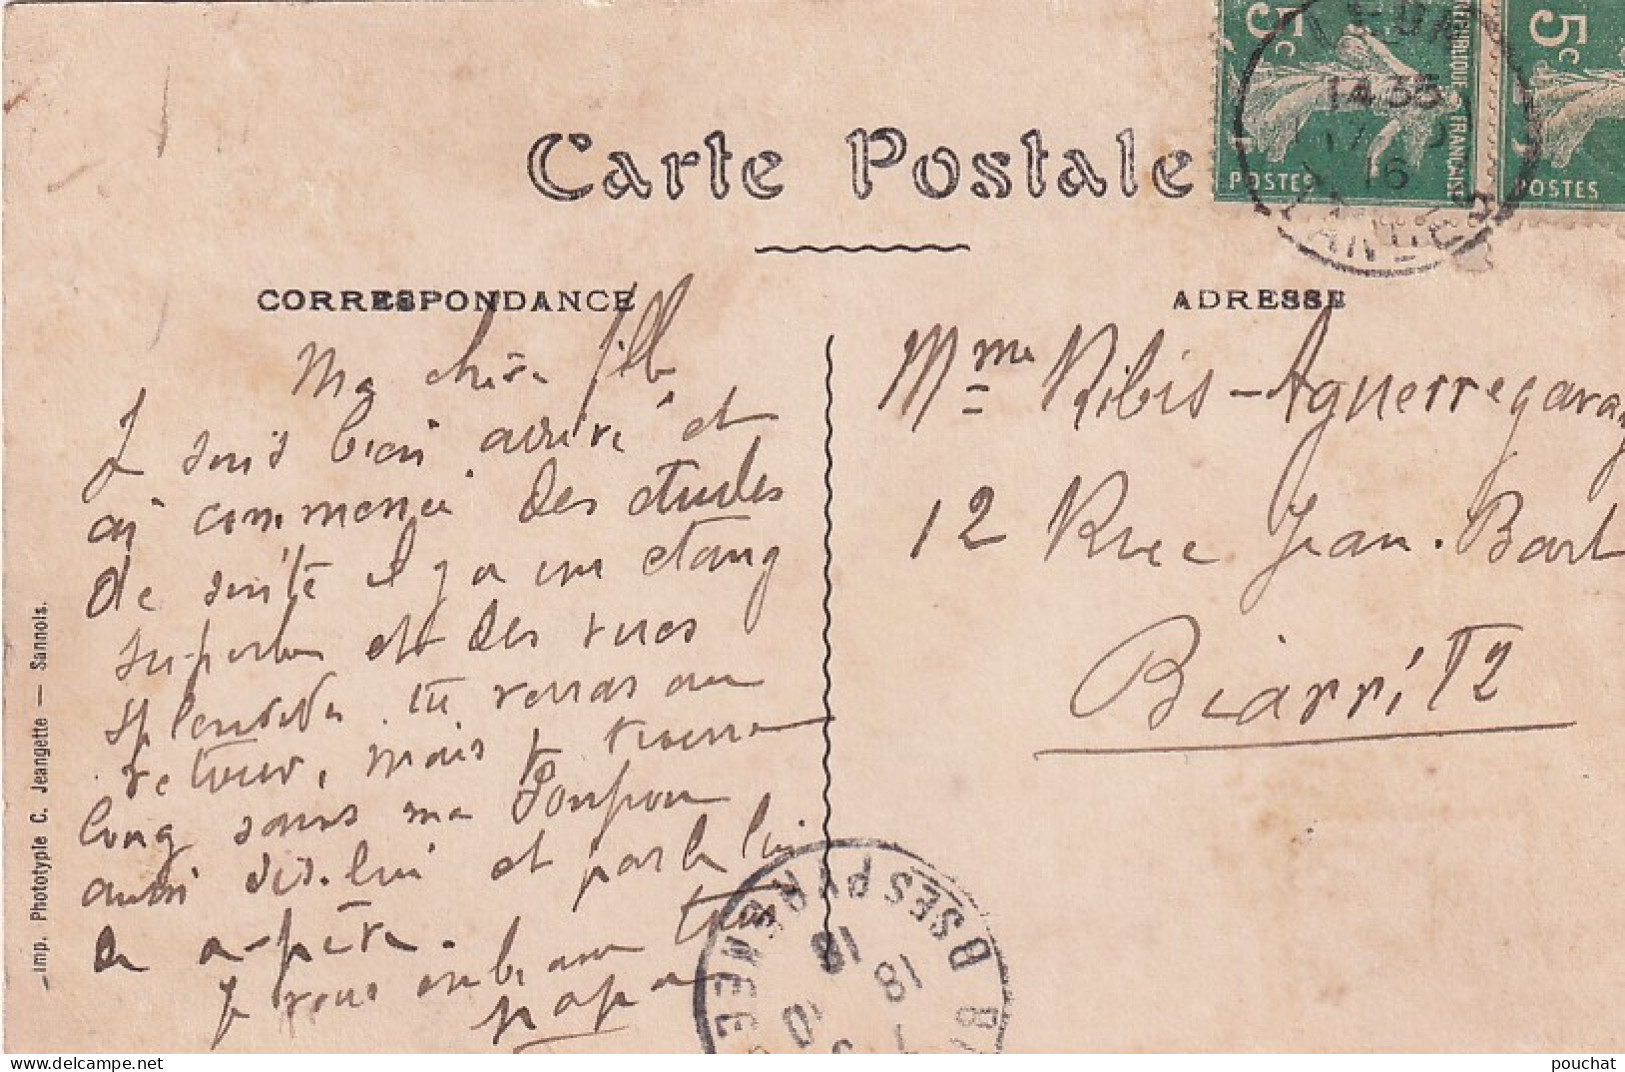 Carte Postale
CORRESPONDANCE
ADRESSE
5c
POSTES
RÉPUBLIQUE FRANÇAISE
5c
POSTES
14 35
16
Ma chère fille
Je suis bien arrivé et
ai commencé des études
de suite il y a un etang
superbe et des vues
splendides. tu verras au
retour, mais je trouve
long sans ma Poupou
aussi dis-lui et parle lui
de a-père.
Je vous embrasse tous
papa
Mme Ribis-Aguerregaray
12 Rue Jean-Bart
Biarritz
BSES PYRENEES
18
18
Imp. Phototypie C. Jeangette — Sannois.
pouchat